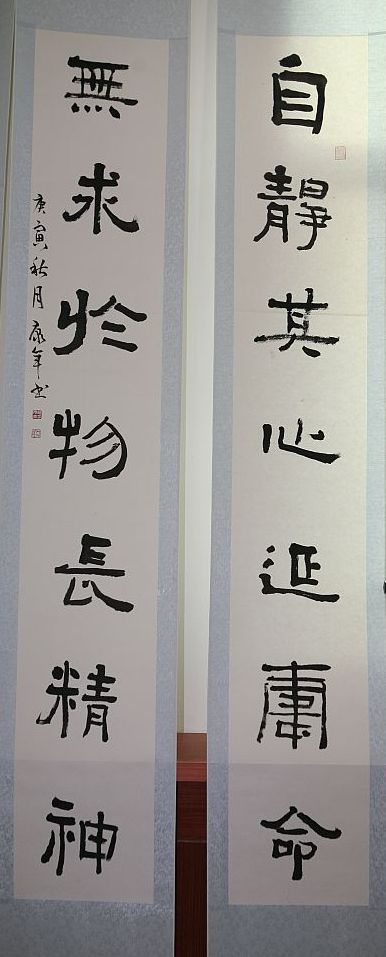 自靜其心延壽命
無求於物長精神
庚寅秋月康年书